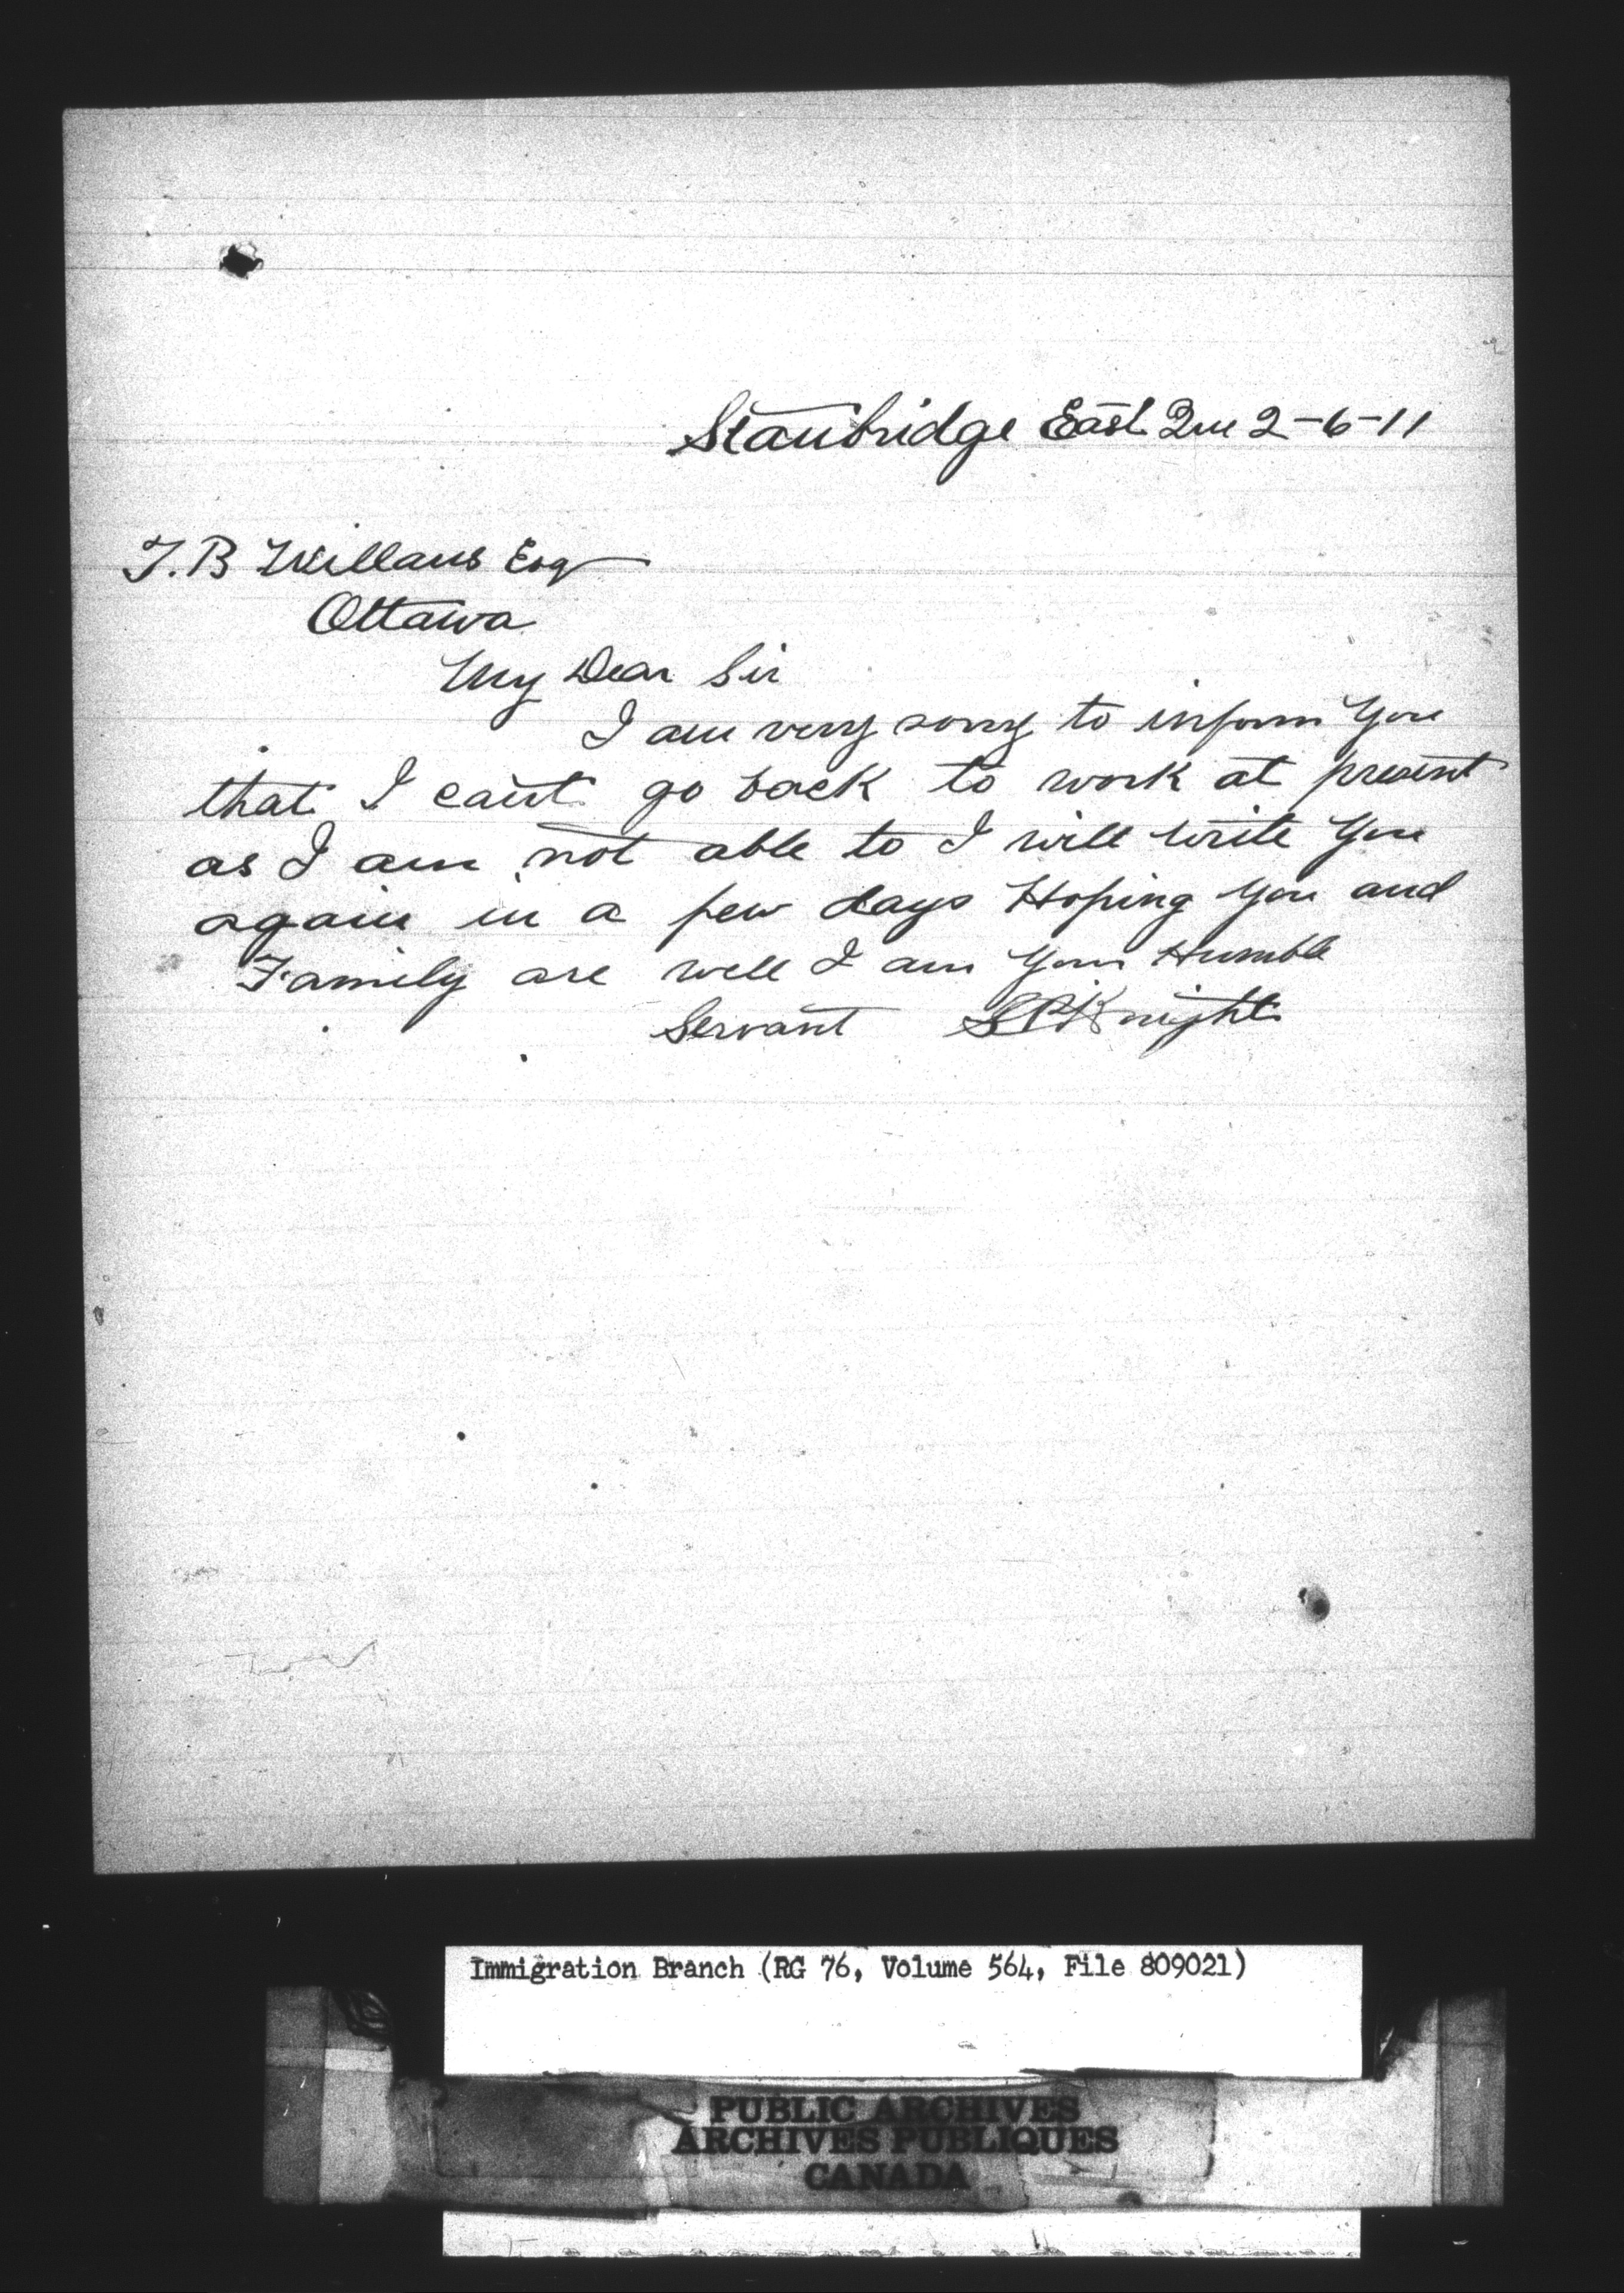 Stanbridge East Que 2-6-11
T.B Willans Esq
Ottawa
My Dear Sir
I am very sorry to inform You
that I can't go back to work at present
as I am not able to I will write You
again in a few days Hoping You and
Family are well I am Your Humble
Servant Knight
Immigration Branch (RG 76, Volume 564, File 809021)
PUBLIC ARCHIVES
ARCHIVES PUBLIQUES
CANADA